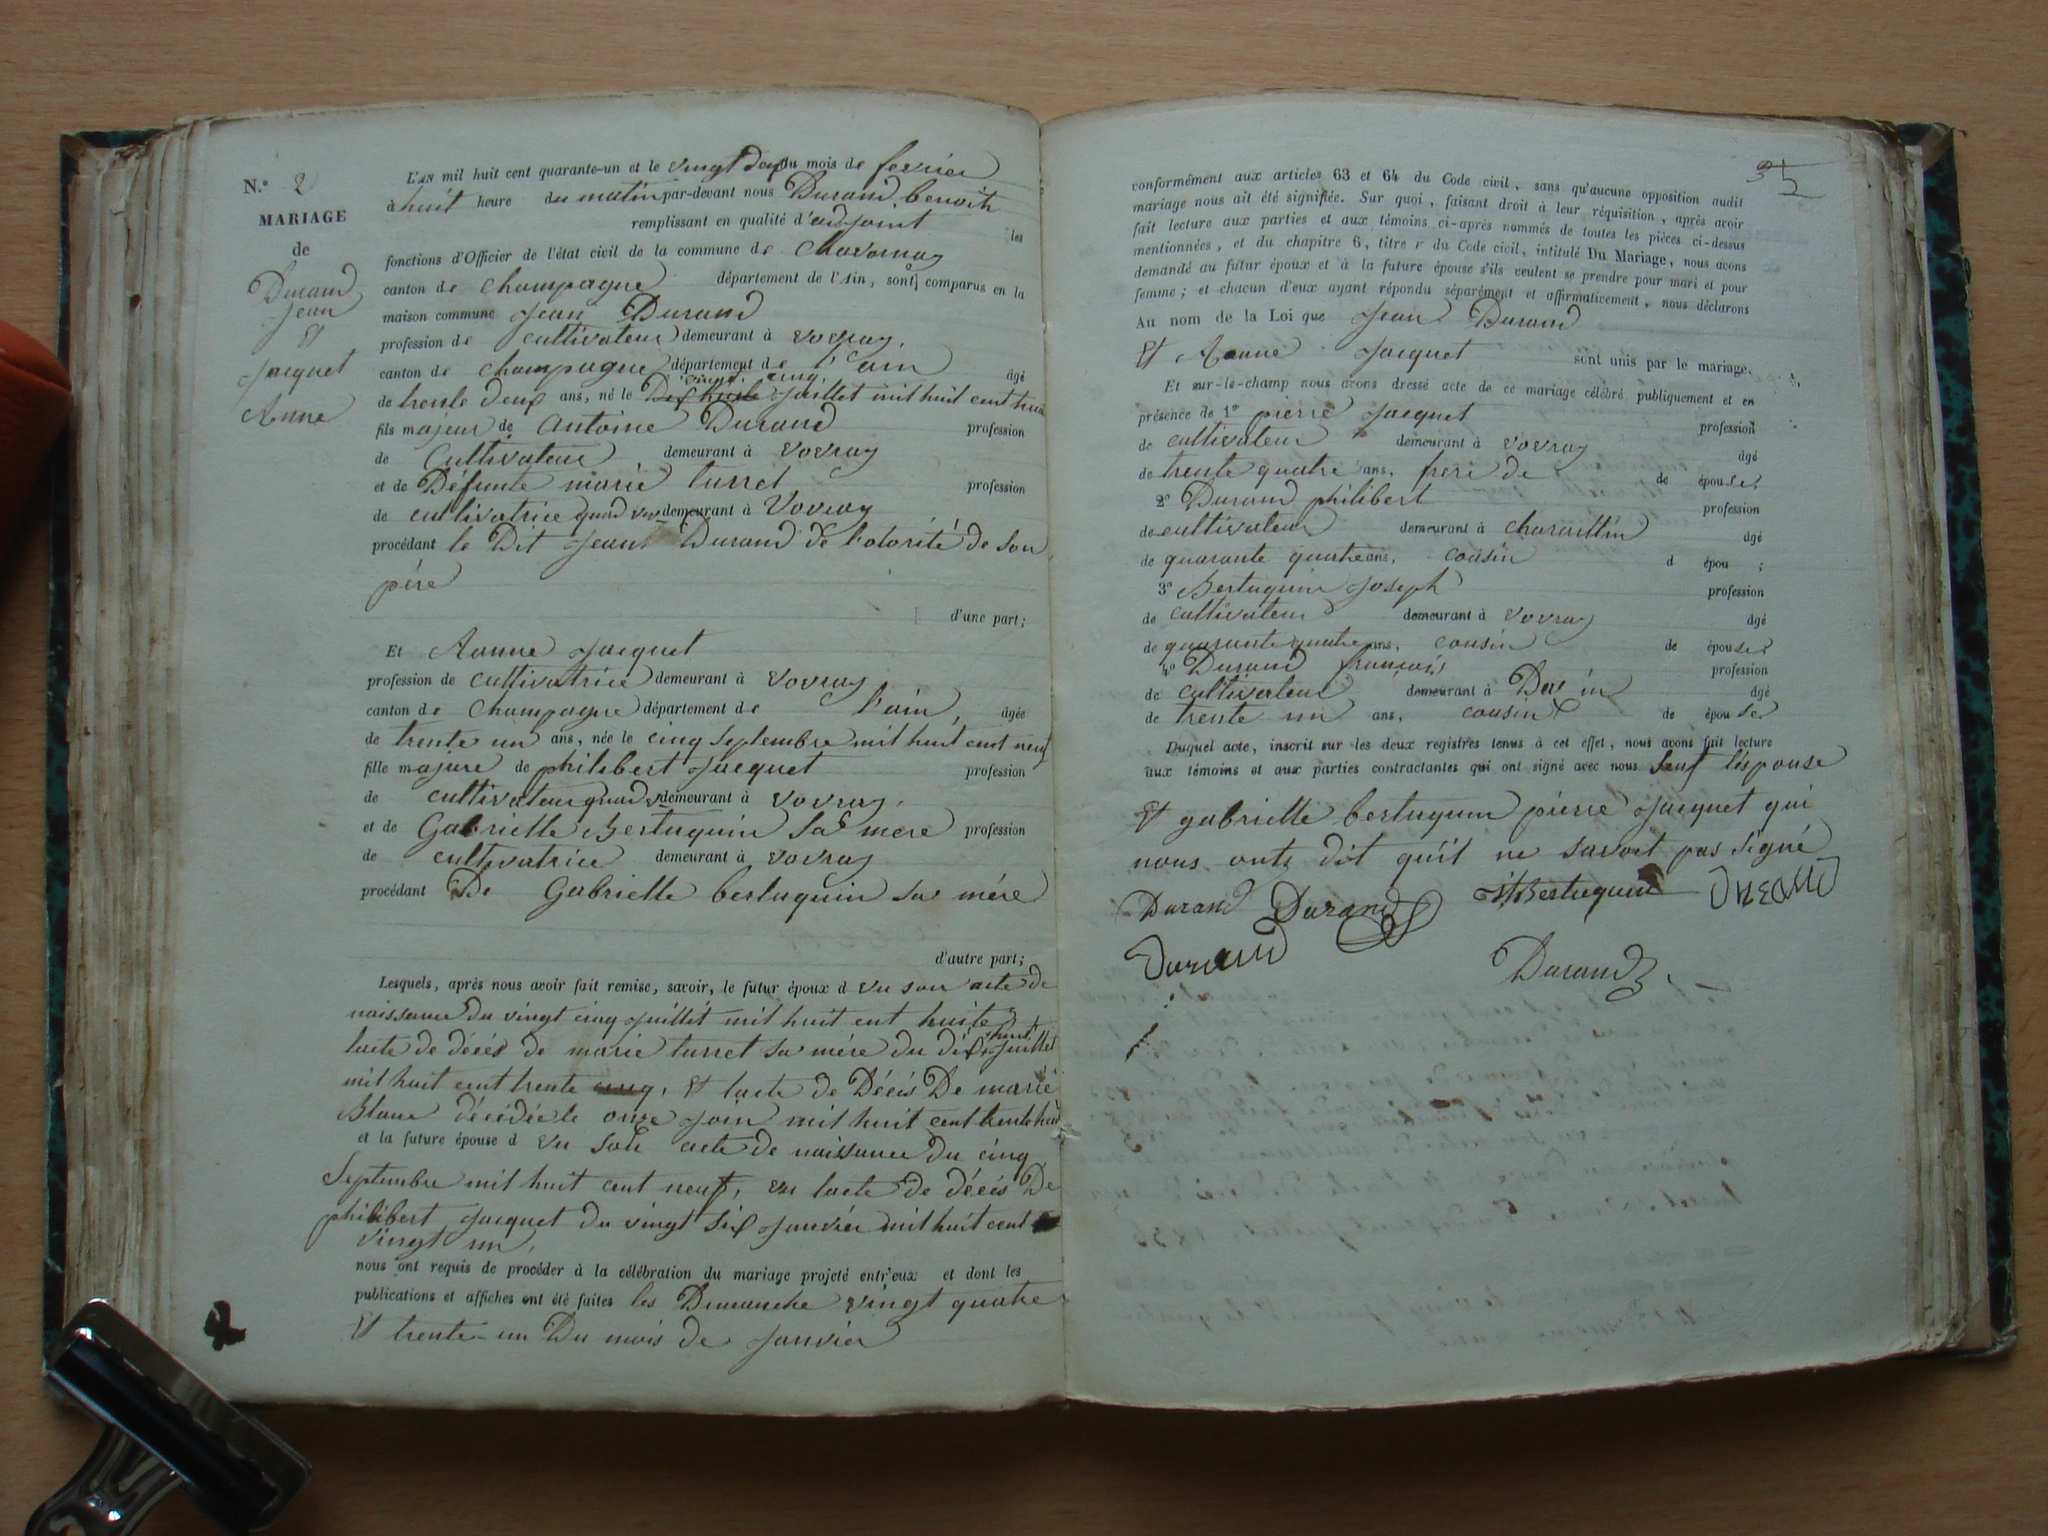 N.o 2
MARIAGE
de
Durand
Jean
Et
Jacquet
Anne
L'AN mil huit cent quarante-un et le vingt deux du mois de fevrier
à huit heure du matin par-devant nous Durand benoit
remplissant en qualité d'adjoint les
fonctions d'Officier de l'état civil de la commune de Chavornay
canton de Champagne département de l'Ain, sont comparus en la
maison commune Jean Durand
profession de cultivateur demeurant à vovray,
canton de Champagne département de l'ain âgé
de trente deux ans, né le vingt cinq Juillet mil huit cent huit
fils majeur de Antoine Durand profession
de Cultivateur demeurant à vovray
et de Défunte marie turrel profession
de cultivatrice quand vivait demeurant à Vovray
procédant le Dit Jean Durand de l'otorité de son
père
d'une part;
Et Aanne Jacquet
profession de cultivatrice demeurant à vovray
canton de Champagne département de l'ain, âgée
de trente un ans, née le cinq Septembre mil huit cent neuf
fille majure de philibert Jacquet profession
de cultivateur quand v demeurant à vovray,
et de Gabrielle Bertuquin Sa mere profession
de cultivatrice demeurant à vovray
procédant De Gabrielle bertuquin sa mére
d'autre part;
Lesquels, après nous avoir fait remise, savoir, le futur époux d vu son acte de
naissance du vingt cinq Juillet mil huit cent huite
lacte de décés de marie turrel sa mére du dix huit Juillet
mil huit cent trente cinq, Et lacte de Décés De marie
Blanc décédée le onze Join mil huit cent trente huit
et la future épouse d vu son acte de naissance du cinq
Septembre mil huit cent neuf, vu lacte de décés De
philibert Jacquet du vingt six Janvier mil huit cent
vingt un,
nous ont requis de procéder à la célébration du mariage projeté entr'eux et dont les
publications et affiches ont été faites les Dimanche vingt quatre
Et trente-un Du mois de Janvier
conformément aux articles 63 et 64 du Code civil, sans qu'aucune opposition audit
mariage nous ait été signifiée. Sur quoi, faisant droit à leur réquisition, après avoir
fait lecture aux parties et aux témoins ci-après nommés de toutes les pièces ci-dessus
mentionnées, et du chapitre 6, titre v du Code civil, intitulé Du Mariage, nous avons
demandé au futur époux et à la future épouse s'ils veulent se prendre pour mari et pour
femme; et chacun d'eux ayant répondu séparément et affirmativement, nous déclarons
Au nom de la Loi que Jean Durand
Et Aanne Jacquet sont unis par le mariage.
Et sur-le-champ nous avons dressé acte de ce mariage célébré publiquement et en
présence de 1o pierre Jacquet profession
de cultivateur demeurant à vovray âgé
de trente quatre ans, frere de de épouse;
2o Durand philibert profession
de cultivateur demeurant à charaillin âgé
de quarante quatre ans, cousin d épou ;
3o Bertuquin Joseph profession
de cultivateur demeurant à vovray âgé
de quarante quatre ans, cousin de épouse;
4o Durand françois profession
de cultivateur demeurant à âgé
de trente un ans, cousin de épouse
Duquel acte, inscrit sur les deux registres tenus à cet effet, nous avons fait lecture
aux témoins et aux parties contractantes qui ont signé avec nous Sauf l'épouse
Et gabrielle bertuquin pierre Jacquet qui
nous onts dit qu'il ne savoit pas signé
Durand Durand Bertuquin Durand
Durand Durand